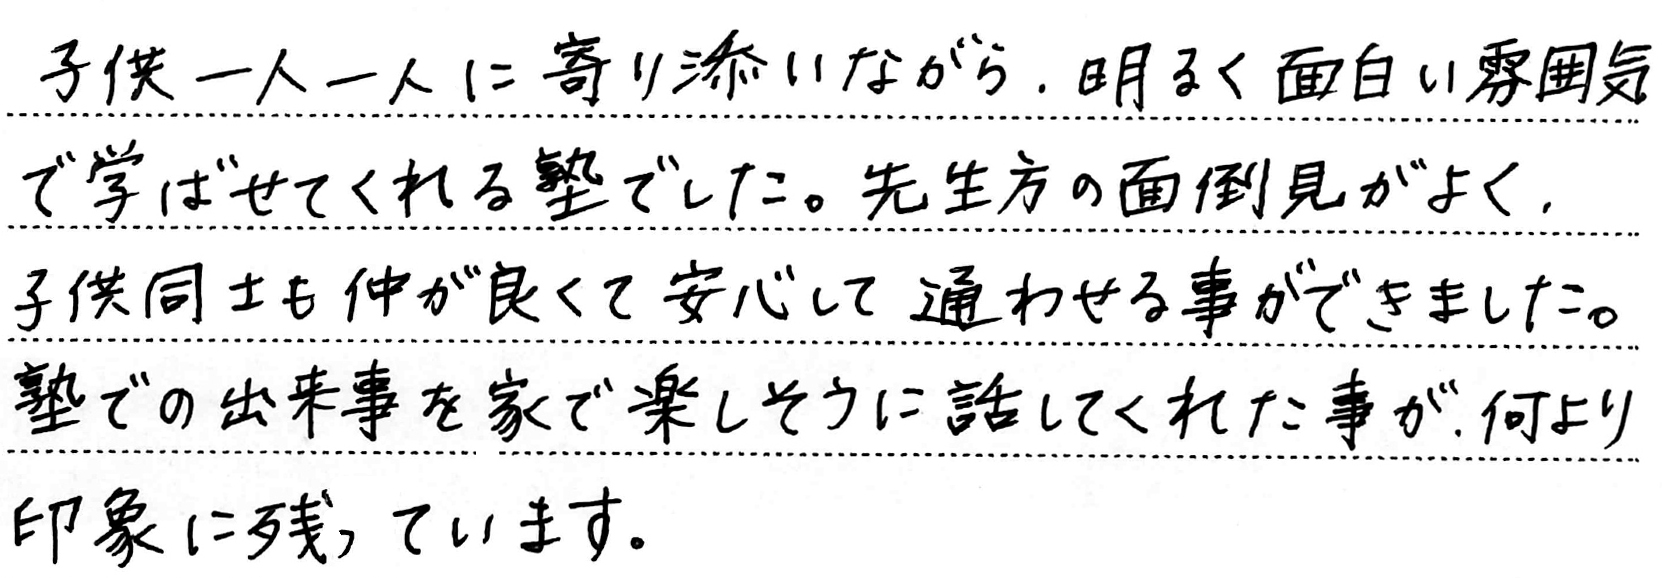 子供一人一人に寄り添いながら、明るく面白い雰囲気
で学ばせてくれる塾でした。先生方の面倒見がよく、
子供同士も仲が良くて安心して通わせる事ができました。
塾での出来事を家で楽しそうに話してくれた事が、何より
印象に残っています。